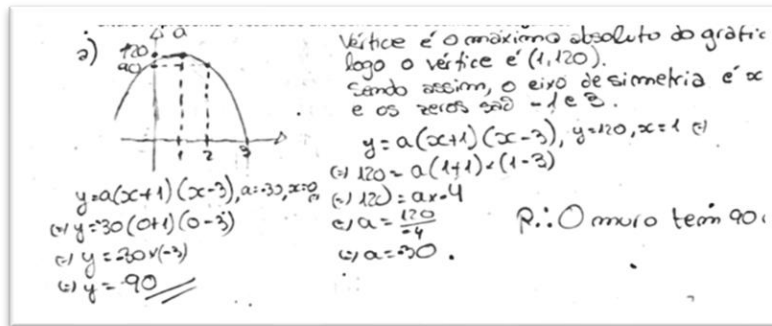 a)
a
120
90
1 2 3
Vértice é o máximo absoluto do gráfic
logo o vértice é (1,120).
Sendo assim, o eixo de simetria é x
e os zeros são -1 e 3.
y=a(x+1)(x-3), y=120, x=1 (=)
(=) 120=a(1+1)×(1-3)
(=) 120=a×-4
(=) a=120/-4
(=) a=-30.
y=a(x+1)(x-3), a=-30, x=0
(=) y=-30(0+1)(0-3)
(=) y=-30×(-3)
(=) y=90
R.: O muro tem 90